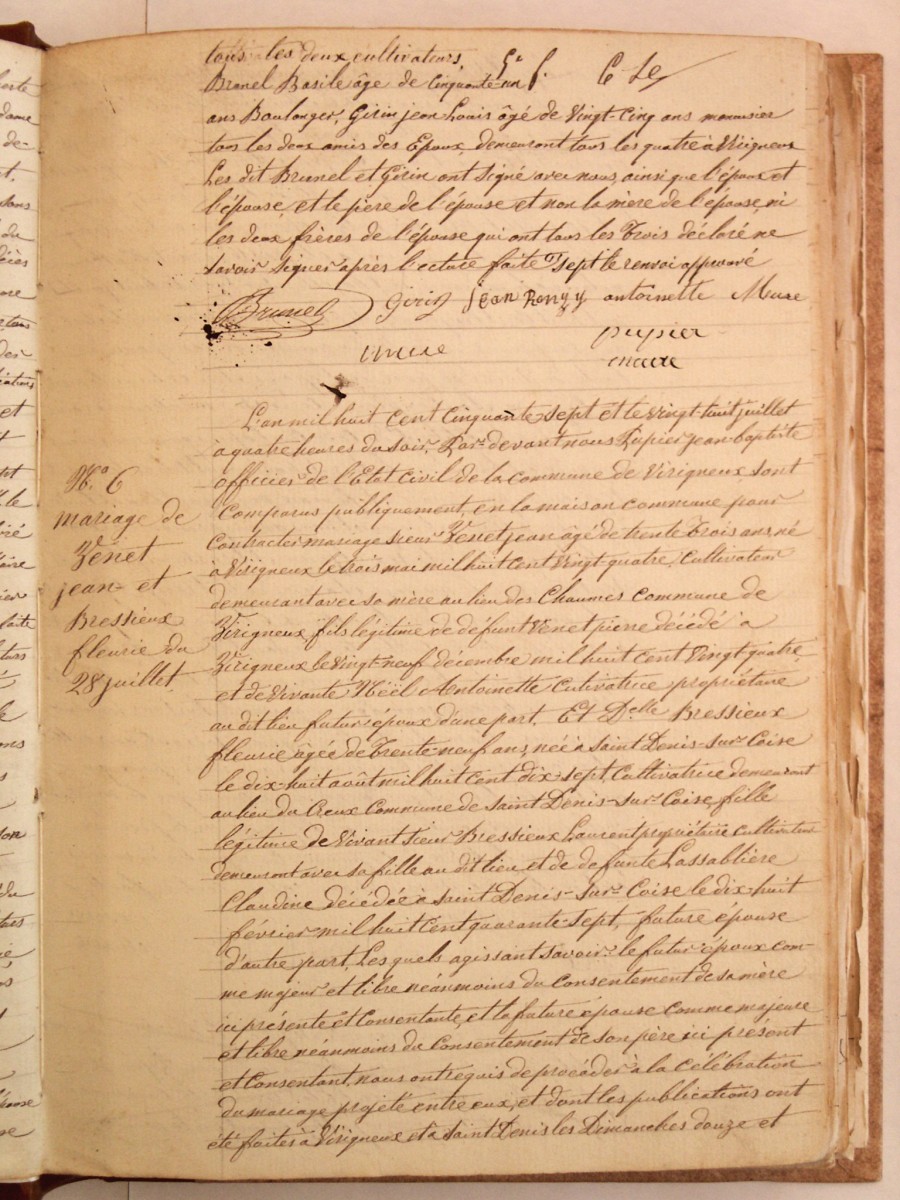 tous les deux cultivateurs,
5e f. 6 Le
Brunel Basile âge de Cinquante-un
ans Boulanger, Girin jean Louis âgé de Vingt-Cinq ans menuisier
tous les deux amis des Epoux, demeurant tous les quatre à Virigneux
Les dit Brunel et Girin ont Signé avec nous, ainsi que l'époux et
l'épouse, et le père de l'épouse et non la mère de l'épouse, ni
les deux frères de l'épouse qui ont tous les Trois déclaré ne
savoir Signer après lecture faite Sept le renvoi approuvé
Brunel Girin jean antoinette Mure
mure pupier
maire
L'an mil huit cent Cinquante Sept et le Vingt-huit juillet
à quatre heures du Soir, Par-devant nous Pupier jean-baptiste
officier de l'Etat civil de la commune de Virigneux, sont
Comparus publiquement, en la maison commune pour
Contracter mariage Sieur Venet jean âgé de trente trois ans, né
à Virigneux le trois mai mil huit cent Vingt-quatre, Cultivateur
demeurant avec sa mère au lieu des Chaumes Commune de
Virigneux, fils légitime de défunt Venet pierre décédé à
Virigneux le Vingt-neuf décembre mil huit cent Vingt quatre,
et de Vivante Noël Antoinette Cutivatrice propriétaire
au dit lieu futur époux d'une part, Et Delle Bressieux
fleurie âgée de Trente-neuf ans, née à Saint Denis-sur-Coise
le dix-huit août mil huit cent dix-sept Cultivatrice demeurant
au lieu du Creux Commune de Saint Denis-sur-Coise, fille
légitime de Vivant Sieur Bressieux Laurent propriétaire cultivateur
demeurant avec sa fille au dit lieu, et de defunte Lassablière
Claudine décédée à Saint Denis-sur-Coise le dix-huit
février mil huit Cent quarante-Sept, future épouse
d'autre part, Les quels agissant Savoir: le futur époux com-
me majeur et libre néanmoins du Consentement de sa mère
ici présente et Consentante, et la future épouse comme majeure
et libre néanmoins du Consentement de son père ici présent
et Consentant, nous ont requis de procéder à la Célébration
du mariage projeté entre eux, et dont les publications ont
été faites à Virigneux et à Saint Denis les Dimanches douze et
No. 6
mariage de
Venet
jean et
Bressieux
fleurie du
28 juillet.